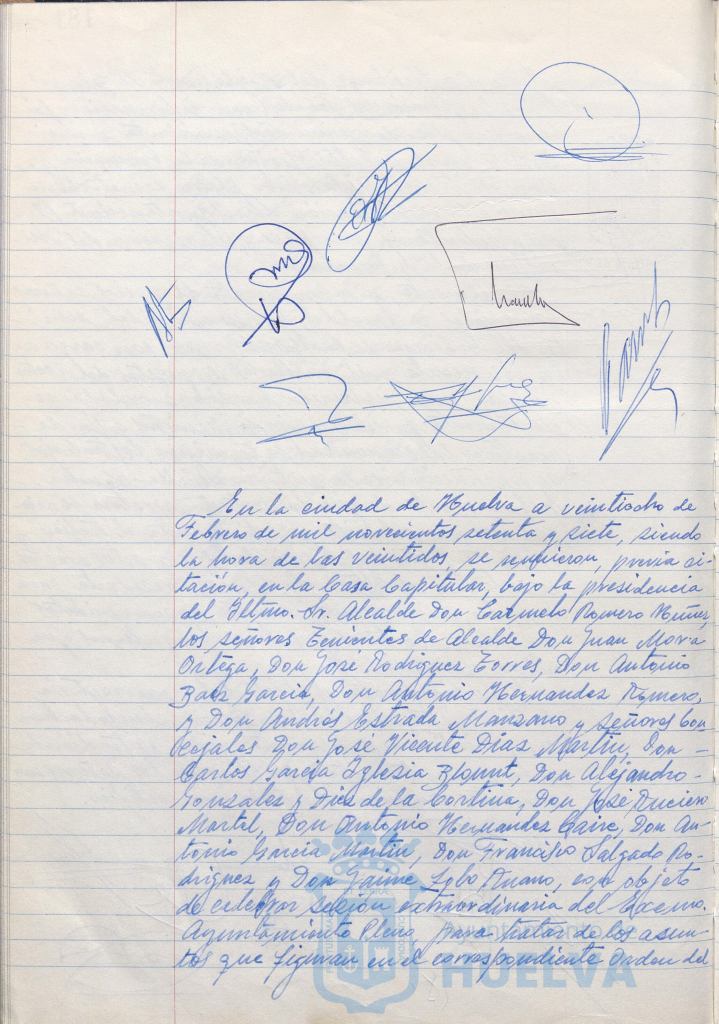 En la ciudad de Huelva a veintiocho de
Febrero de mil novecientos setenta y siete, siendo
la hora de las veintidos, se reunieron, previa ci-
tación, en la Casa Capitular, bajo la presidencia
del Iltmo. Sr. Alcalde Don Carmelo Romero Núñez,
los señores Tenientes de Alcalde Don Juan Mora
Ortega, Don José Rodriguez Torres, Don Antonio
Baez Garcia, Don Antonio Hernandez Romero,
y Don Andrés Estrada Manzano y señores Con
cejales Don José Vicente Diaz Martin, Don -
Carlos Garcia Iglesia Blount, Don Alejandro -
Gonzalez y Diez de la Cortina, Don José
Martel, Don Antonio Hernandez Don An-
tonio Garcia Martin, Don Francisco Salgado Ro-
driguez y Don Jaime con objeto
de celebrar sesión extraordinaria del Excmo.
Ayuntamiento Pleno para tratar de los asun-
tos que figuran en el correspondiente Orden del
Ayuntamiento de
HUELVA